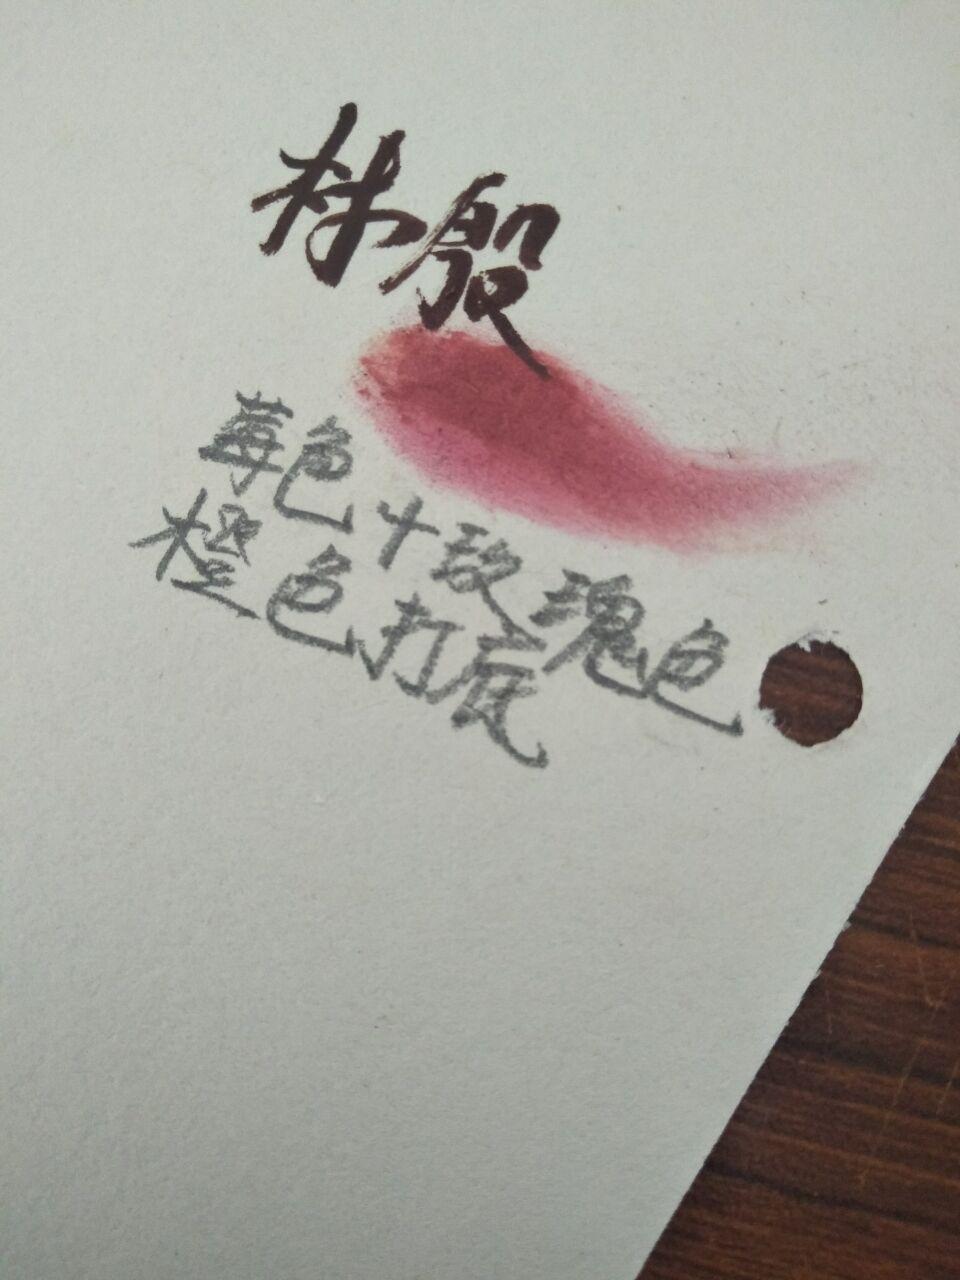 林殷
莓色+玫瑰色
橙色打底